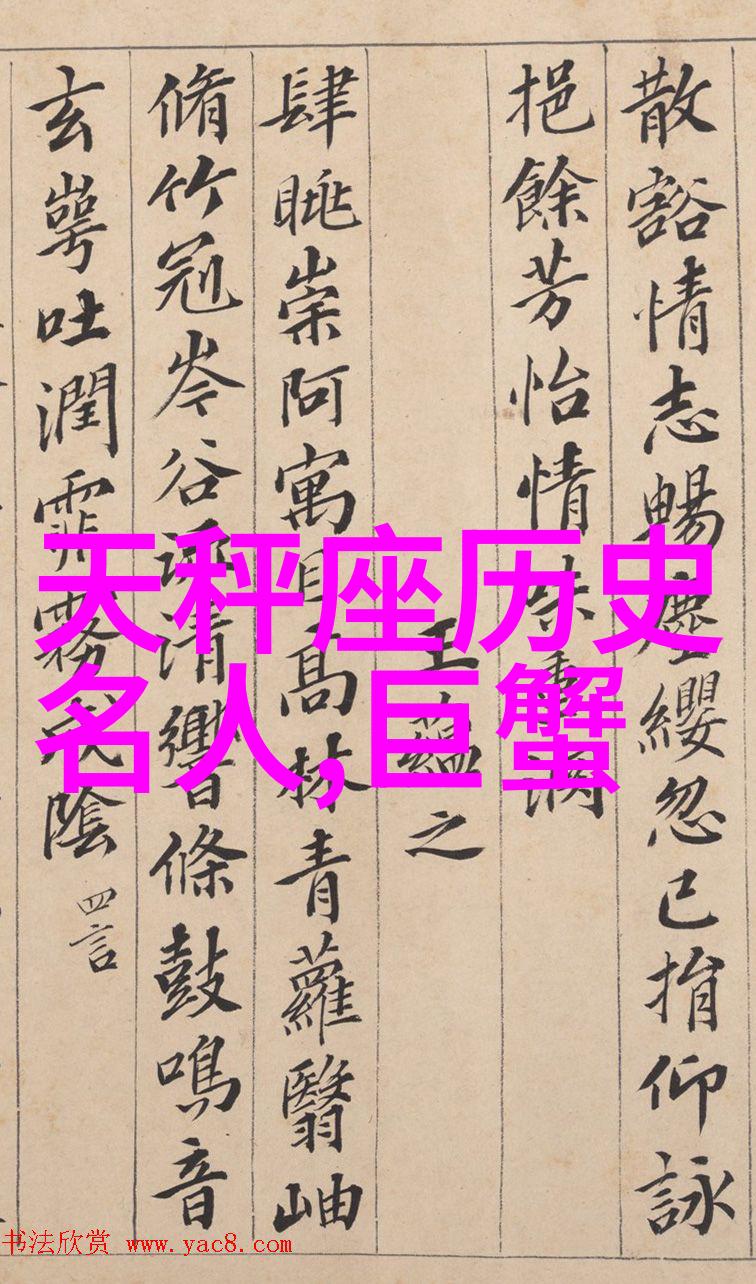 散豁情志暢塵纓忽已捐仰詠
挹餘芳怡情味重渊
王蘊之
肆眺崇阿寓目高林青蘿翳岫
脩竹冠岑谷流清響條鼓鳴音
玄崿吐潤霏霧成陰 四言
天秤座历史
名人,巨蟹
书法欣赏 www.yac8.com